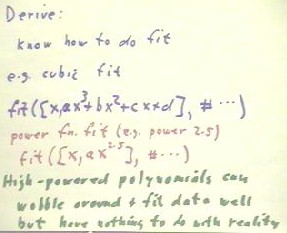 Derive:
know how to do fit
e.g. cubic fit
fit([x,ax³+bx²+cx+d], #...)
power fn. fit (e.g. power 2.5)
fit([x,ax^2.5], #...)
High-powered polynomials can
wobble around & fit data well
but have nothing to do with reality